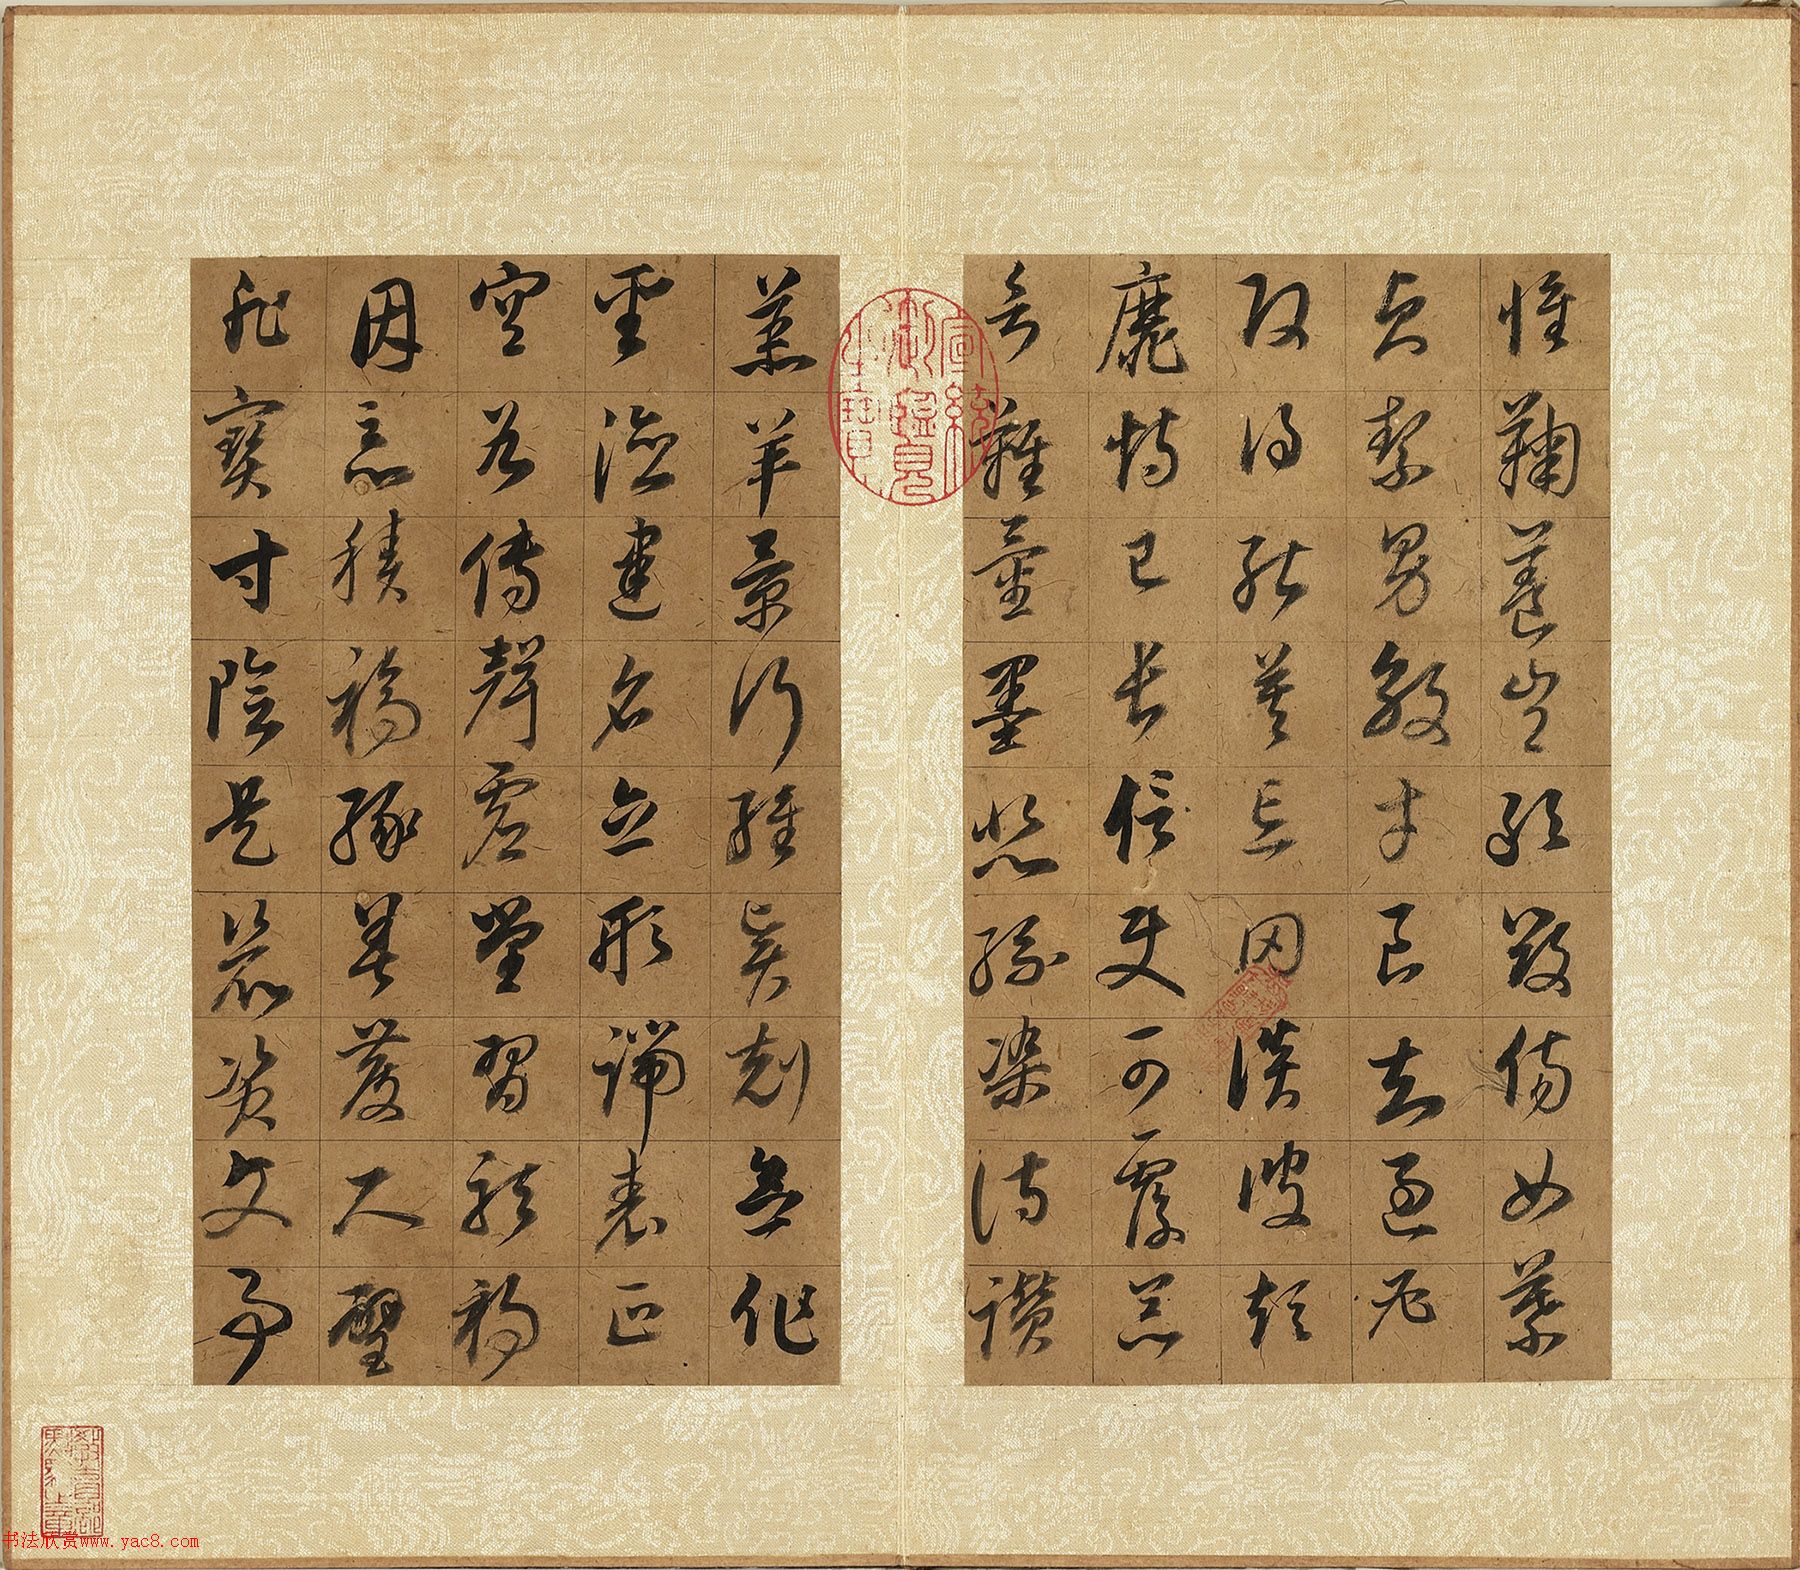 惟鞠養豈敢毀傷女慕
貞絜男效才良知過必
改得能莫忘罔談彼短
靡恃己長信使可覆器
欲難量墨悲絲染詩讚
宣統
御覽
之寶
羔羊景行維賢剋念作
聖德建名立形端表正
空谷傳聲虛堂習聽禍
因惡積福緣善慶尺璧
非寶寸陰是競資父事
书法欣赏www.yac8.com